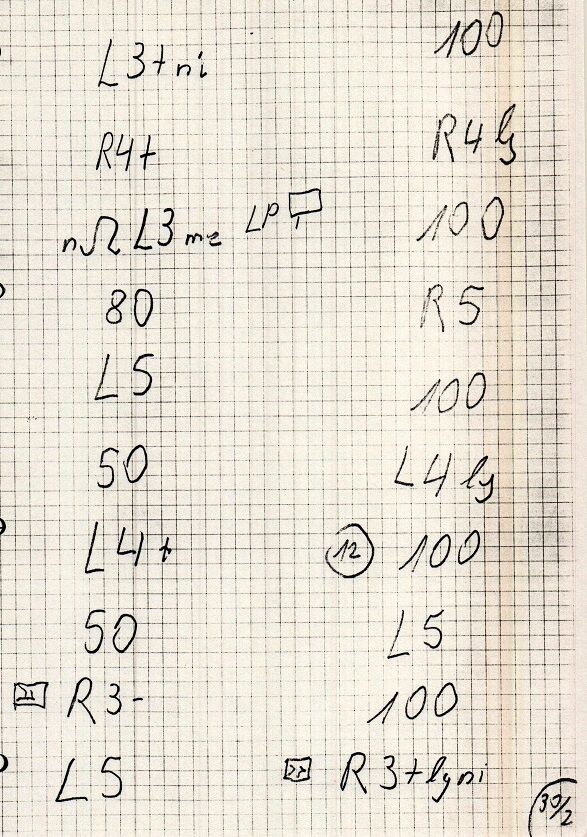 L3+ni
R4+
nΩ L3 me LP
80
L5
50
L4+
50
R3-
L5
100
R4 lg
100
R5
100
L4 lg
12 100
L5
100
>> R3+lgni
30/2